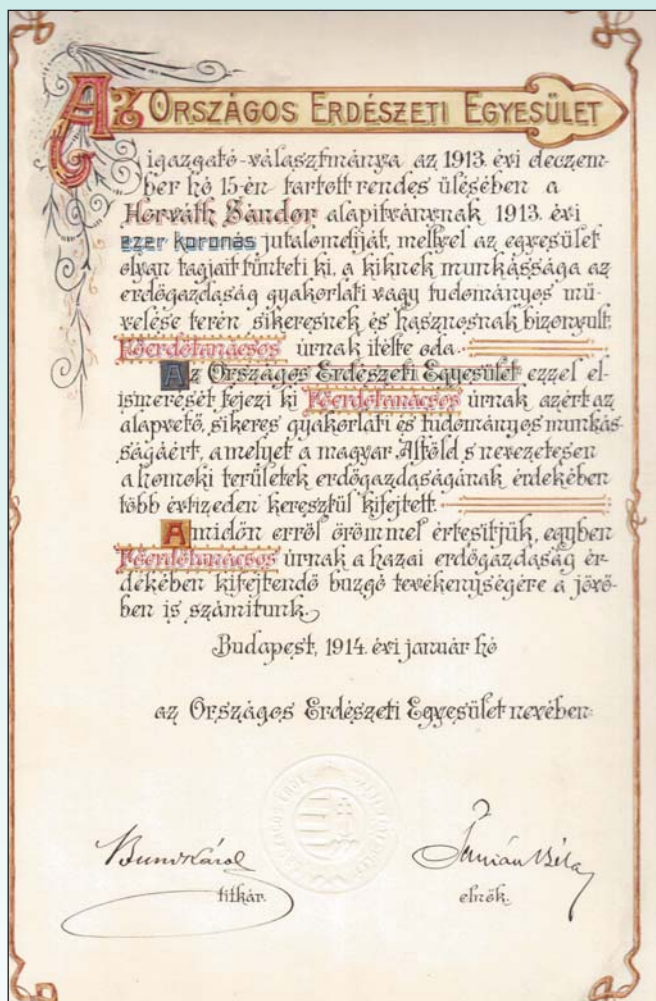 AZ ORSZÁGOS ERDÉSZETI EGYESÜLET
igazgató-választmánya az 1913. évi deczem-
ber hó 15-én tartott rendes ülésében a
Horváth Sándor alapítványnak 1913. évi
ezer koronás jutalomdíját, mellyel az egyesület
olyan tagjait tünteti ki, a kiknek munkássága az
erdőgazdaság gyakorlati vagy tudományos mű-
velése terén sikeresnek és hasznosnak bizonyult
Főerdőtanácsos úrnak ítélte oda.
Az Országos Erdészeti Egyesület ezzel el-
ismerését fejezi ki Főerdőtanácsos úrnak azért az
alapvető, sikeres gyakorlati és tudományos munkás-
ságáért, a melyet a magyar Alföld s nevezetesen
a homoki területek erdőgazdaságának érdekében
több évtizeden keresztül kifejtett.
Amidőn erről örömmel értesítjük, egyben
Főerdőtanácsos úrnak a hazai erdőgazdaság ér-
dekében kifejtendő buzgó tevékenységére a jövő-
ben is számítunk.
Budapest, 1914. évi január hó
az Országos Erdészeti Egyesület nevében:
Bund Károly
titkár.
Béla
elnök.